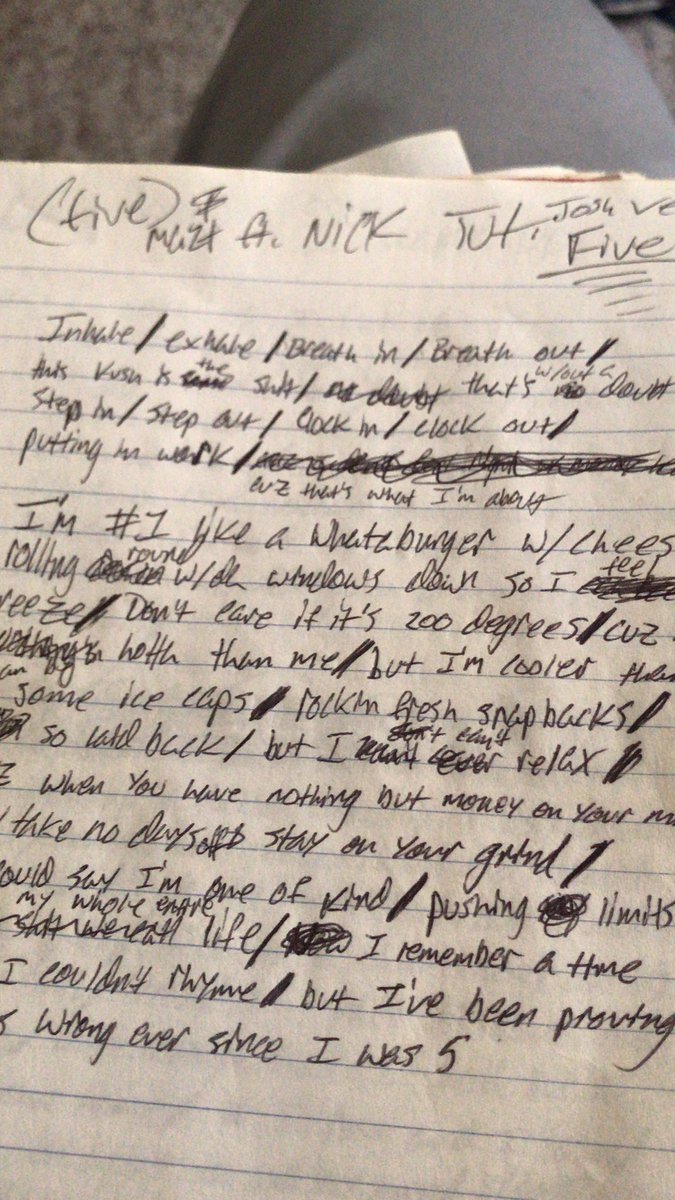 (five) $
matt ft. NICK TUT, Josh Ve
Five
Inhale / exhale / Breath in / Breath out /
this kush is the shit / no doubt that's w/out a doubt
Step in / step out / Clock in / clock out /
putting in work /
cuz that's what I'm about
I'm #1 like a whataburger w/ chees
rolling round w/da windows down so I feel
reeze / Don't care if it's 200 degrees / cuz
hotta than me / but I'm cooler than
some ice caps / rockin fresh snapbacks /
so laid back / but I can't relax /
when you have nothing but money on your m
take no days off stay on your grind /
ould say I'm one of kind / pushing limits
my whole entire life / I remember a time
I couldn't rhyme / but I've been proving
s wrong ever since I was 5